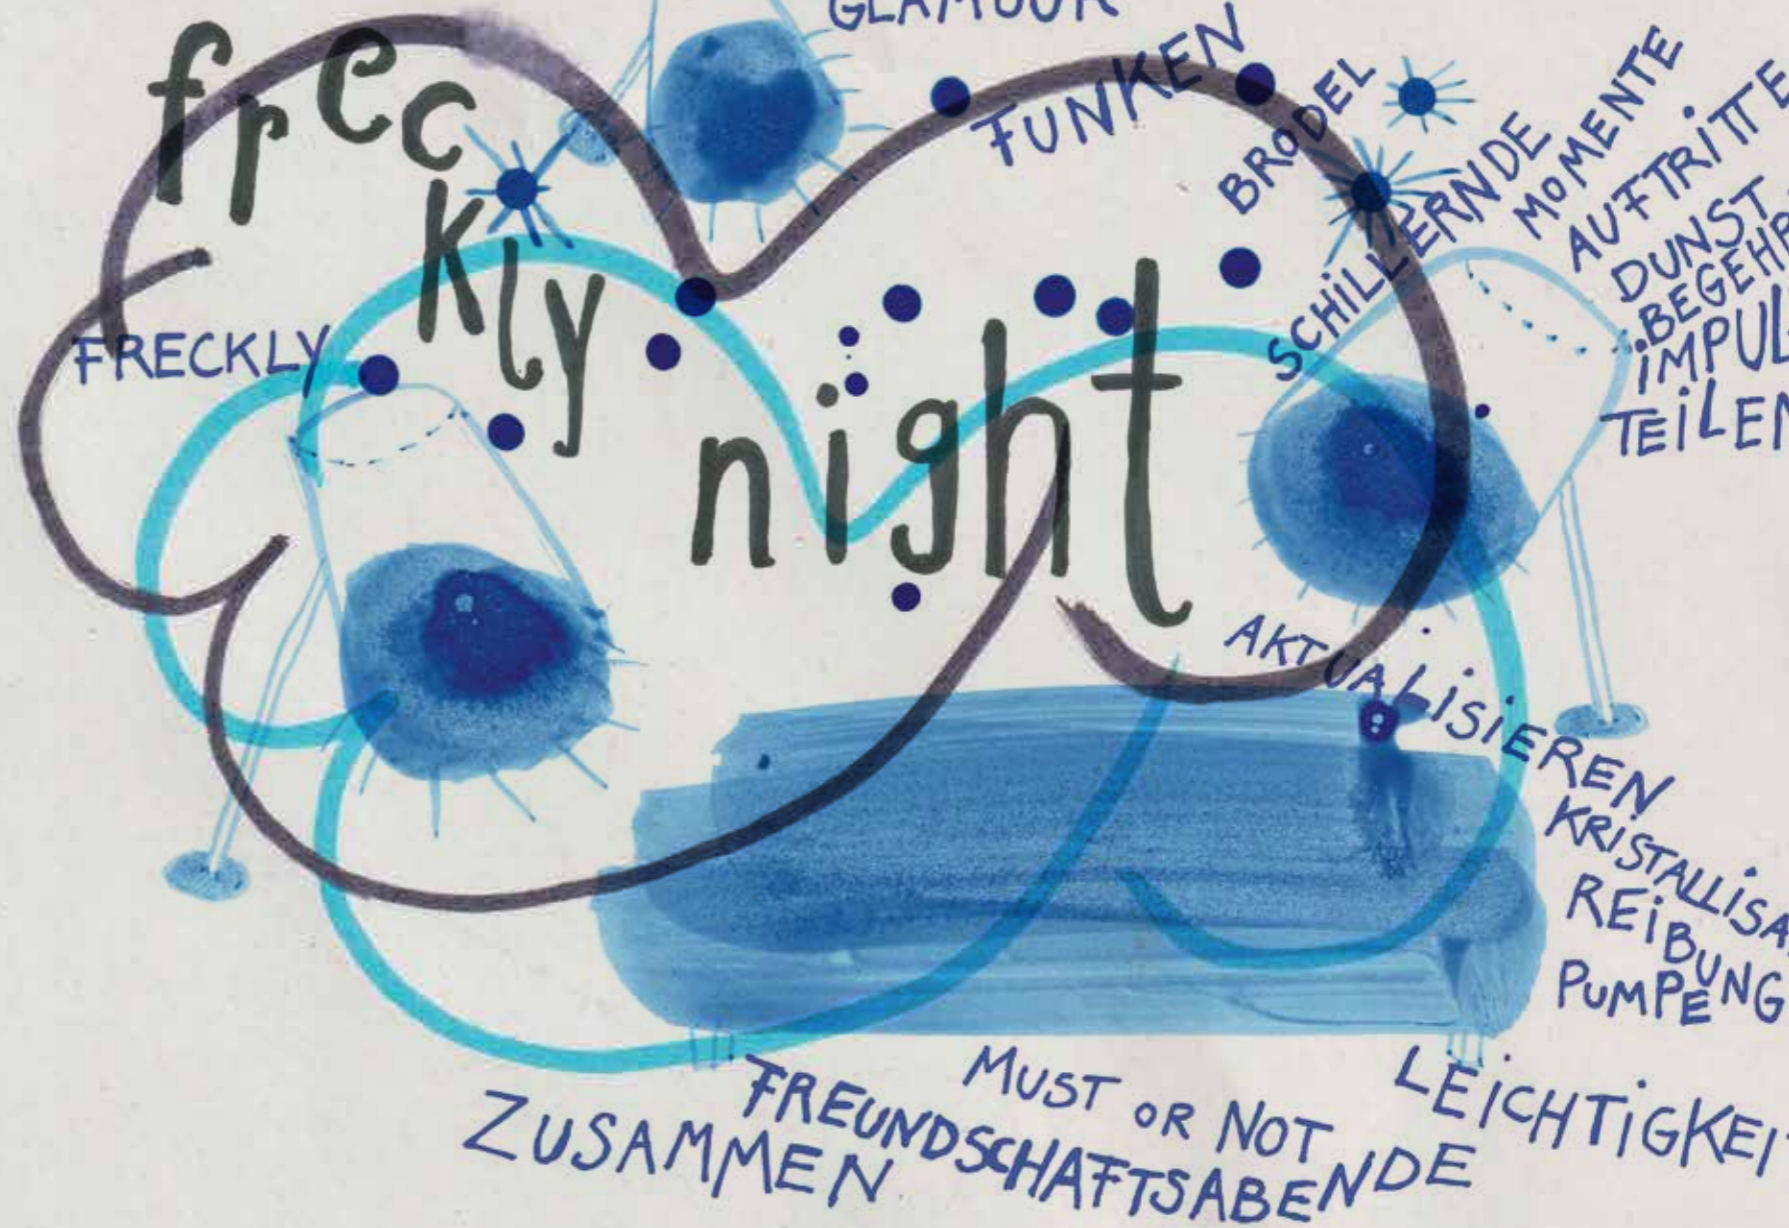 GLAMOUR
frec
kly
night
FRECKLY
FUNKEN
BRODEL
SCHILLERNDE
MOMENTE
AUFTRITTE
DUNST
BEGEHR
IMPUL
TEILEN
AKTUALISIEREN
KRISTALLISA
REIBUNG
PUMPEN
LEICHTIGKEIT
MUST OR NOT
FREUNDSCHAFTSABENDE
ZUSAMMEN